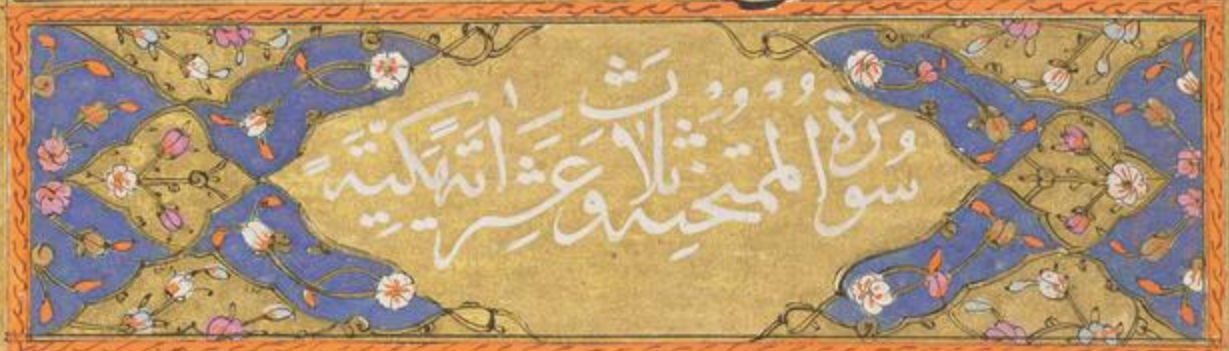 سورة الممتحنه ثلاث وعشر اية مكية